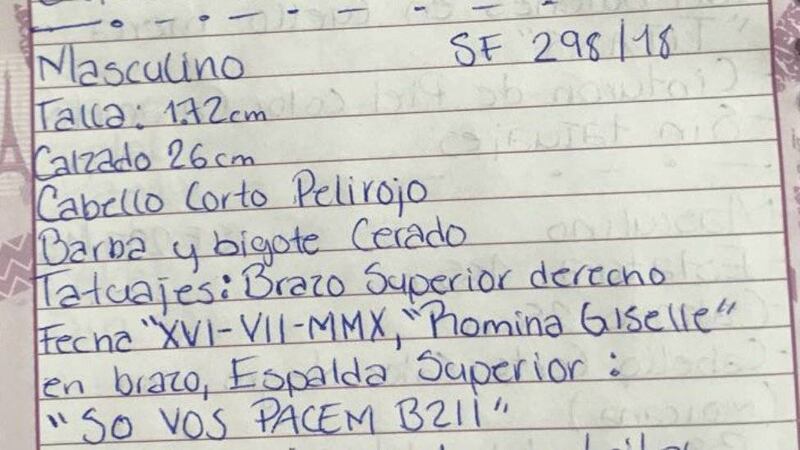 Masculino SF 298/18
Talla: 1.72cm
Calzado 26cm
Cabello Corto Pelirojo
Barba y bigote Cerado
Tatuajes: Brazo Superior derecho
Fecha "XVI-VII-MMX, "Romina Giselle"
en brazo, Espalda Superior :
"SO VOS PACEM B211"